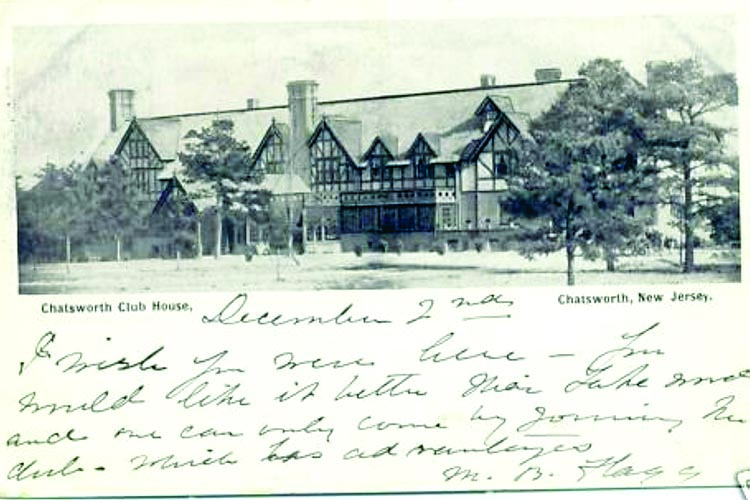 Chatsworth Club House,
Chatsworth, New Jersey.
December 2nd
I wish you were here - you
would like it better than Lakewood
and one can only come by joining the
club - which has advantages
M. B. Flagg